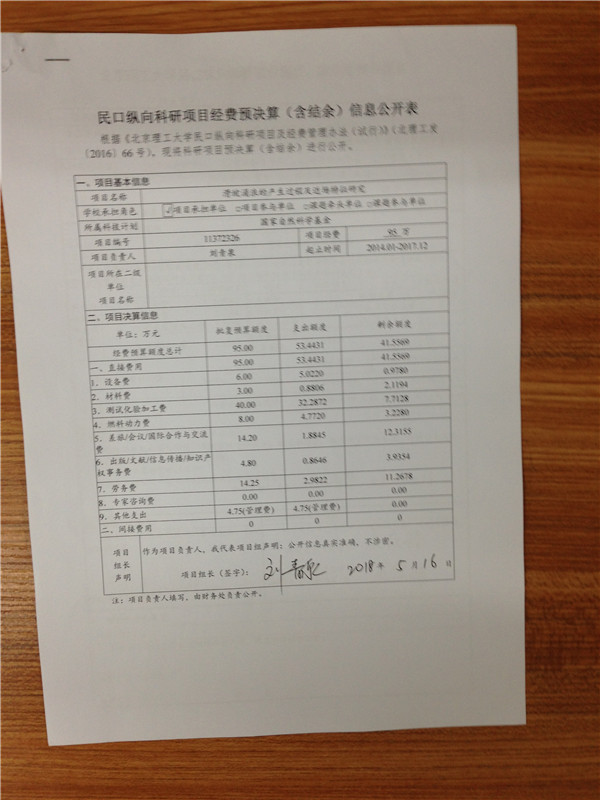 民口纵向科研项目经费预决算（含结余）信息公开表
根据《北京理工大学民口纵向科研项目及经费管理办法（试行）》（北理工发
〔2016〕66号），现将科研项目预决算（含结余）进行公开。
一、项目基本信息
项目名称 滑坡涌浪的产生过程及近场特征研究
学校承担角色 √项目承担单位 □项目参与单位 □课题牵头单位 □课题参与单位
所属科技计划 国家自然科学基金
项目编号 11372326 项目经费 95 万
项目负责人 刘青泉 起止时间 2014.01-2017.12
项目所在二级
单位
项目名称
二、项目决算信息
单位：万元 批复预算额度 支出额度 剩余额度
经费预算额度总计 95.00 53.4431 41.5569
一、直接费用 95.00 53.4431 41.5569
1、设备费 6.00 5.0220 0.9780
2、材料费 3.00 0.8806 2.1194
3、测试化验加工费 40.00 32.2872 7.7128
4、燃料动力费 8.00 4.7720 3.2280
5、差旅/会议/国际合作与交流
费 14.20 1.8845 12.3155
6、出版/文献/信息传播/知识产
权事务费 4.80 0.8646 3.9354
7、劳务费 14.25 2.9822 11.2678
8、专家咨询费 0.00 0.00 0.00
9、其他支出 4.75(管理费) 4.75(管理费) 0.00
二、间接费用 0 0 0
项目
组长
声明
作为项目负责人，我代表项目组声明：公开信息真实准确，不涉密。
项目组长（签字）： 刘青泉 2018 年 5 月 16 日
注：项目负责人填写，由财务处负责公开。